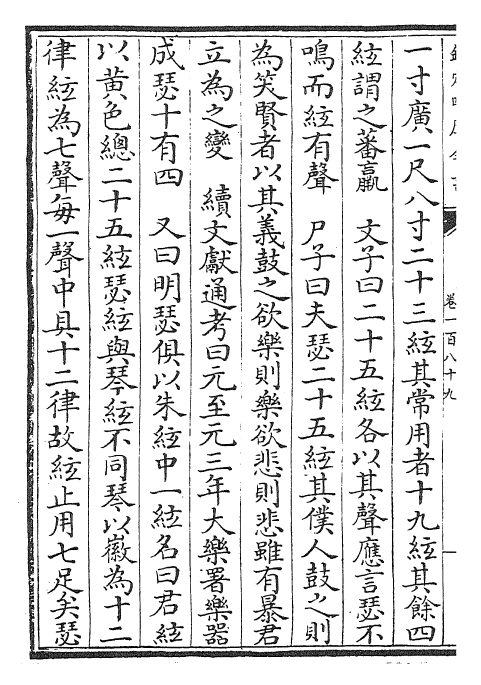 卷一百八十九
一寸廣一尺八寸二十三絃其常用者十九絃其餘四
絃謂之蕃贏　文子曰二十五絃各以其聲應言瑟不
鳴而絃有聲　尸子曰夫瑟二十五絃其僕人鼓之則
為笑賢者以其義鼓之欲樂則樂欲悲則悲雖有暴君
立為之變　續文獻通考曰元至元三年大樂署樂器
成瑟十有四　又曰明瑟俱以朱絃中一絃名曰君絃
以黃色總二十五絃瑟絃與琴絃不同琴以徽為十二
律絃為七聲每一聲中具十二律故絃止用七足矣瑟